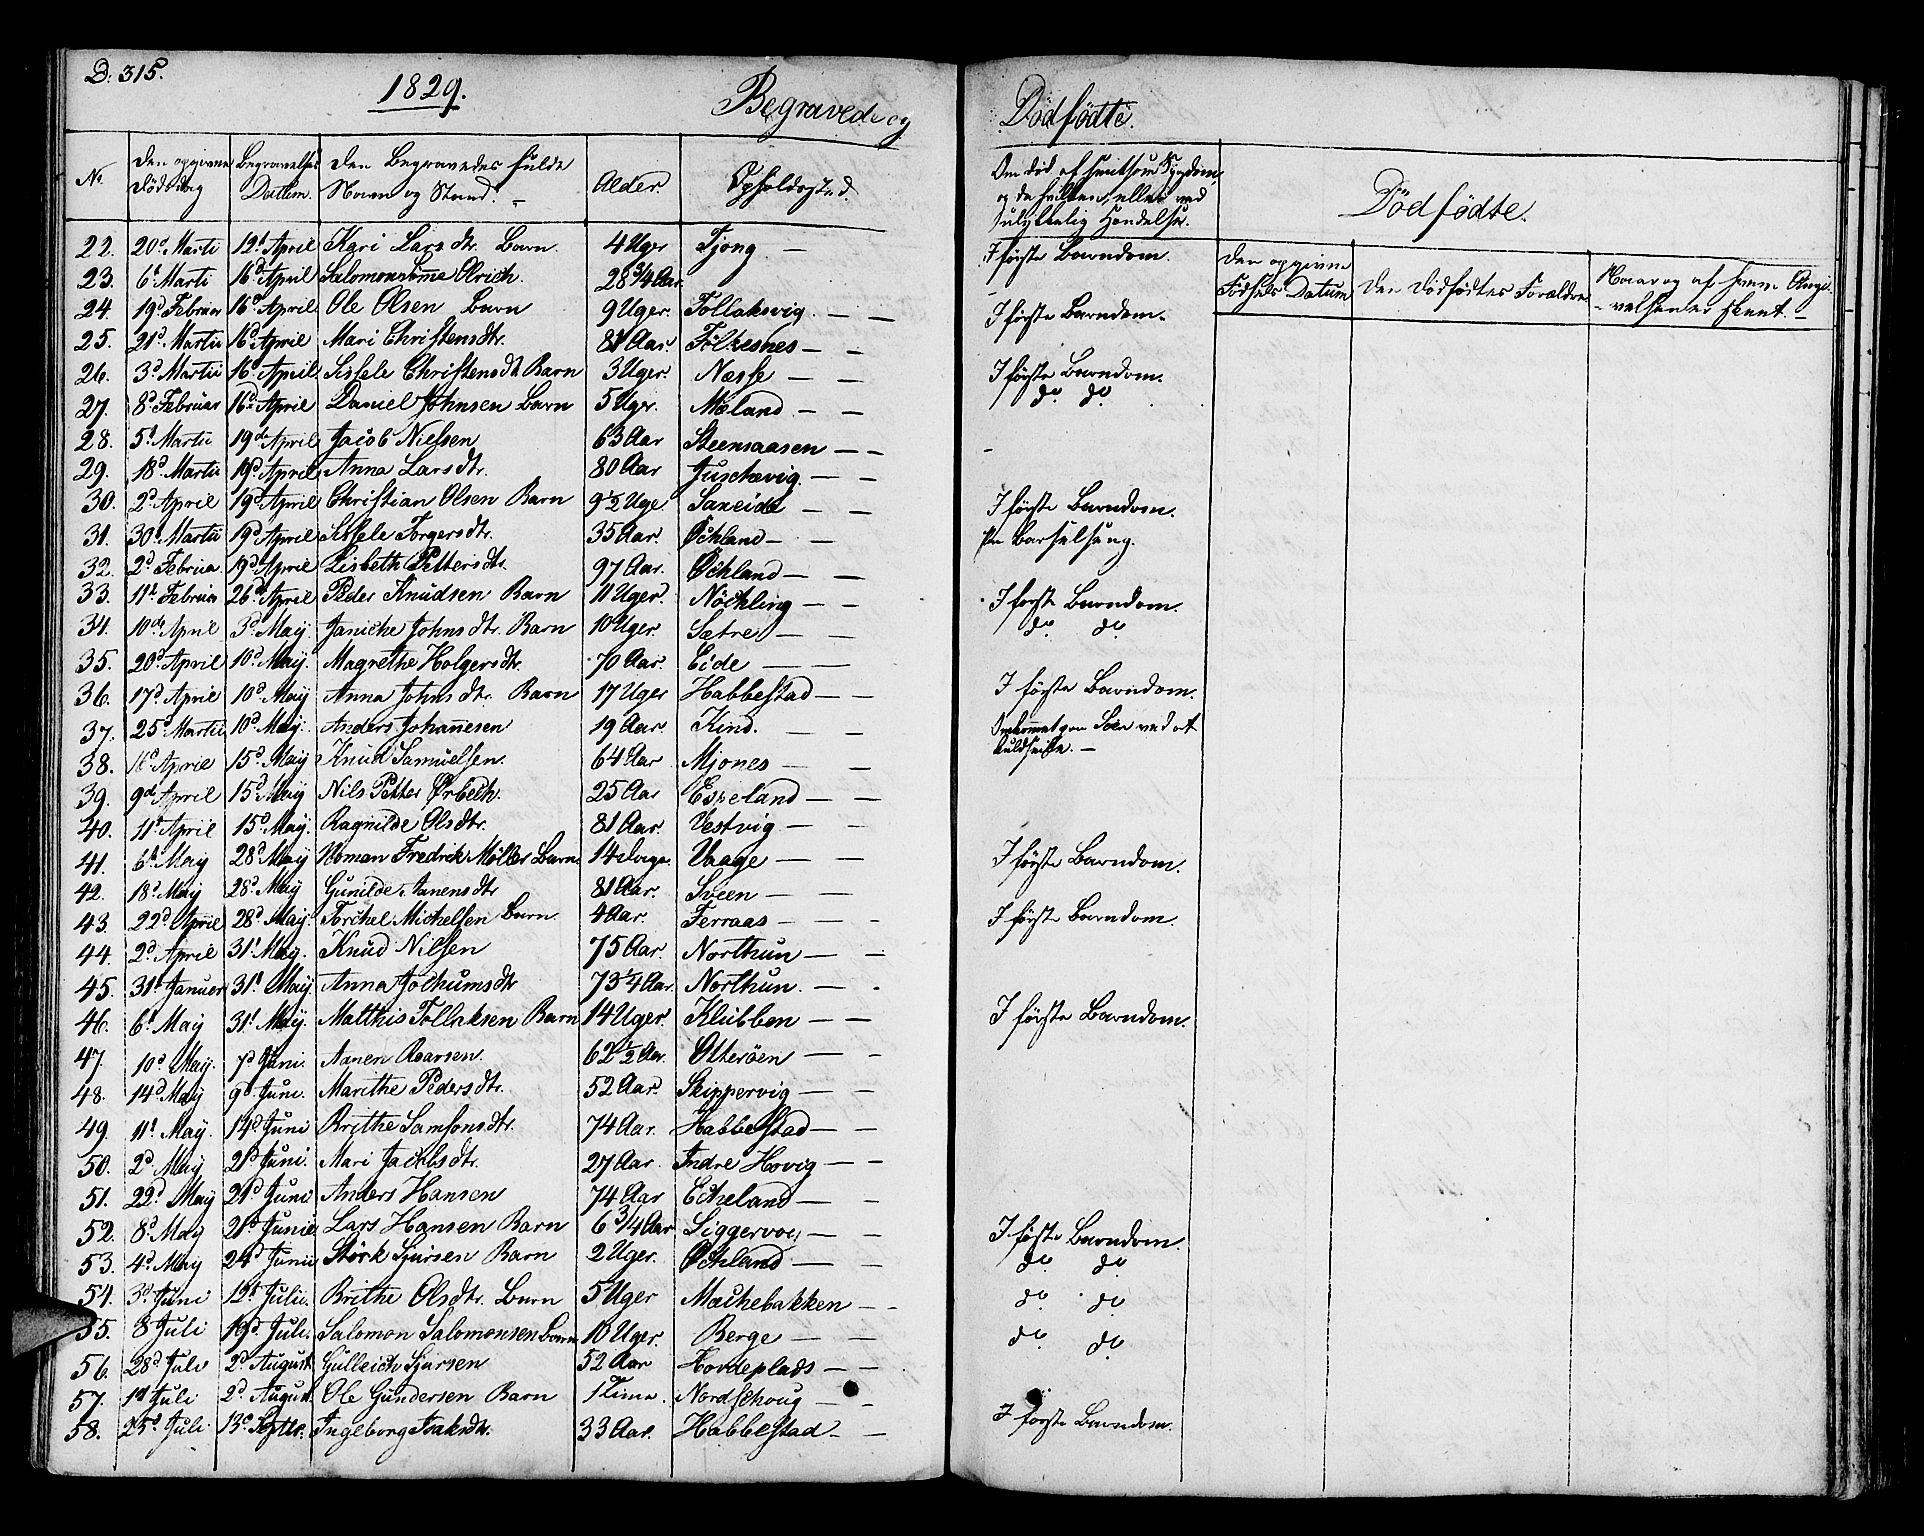 D: 315.
1829.
Begravede og
Dödfödte.
No.
Den opgivne Dödsdag
Begravelses Datum.
Den Begravedes fulde Navn og Stand.
Alder
Opholdssted.
Om död af smitsom Sygdom, og da hvilken, eller ved ulykkelig Hendelse.
Dödfödte.
Den opgivne Födsels Datum
Den Dödfödtes Forældre
22. 20d Marti 12t April Kari Larsdtr. Barn. 4 Uger Tjong — I förste Barndom.
23. 6t Marti 16d April Salomon Ulrich. 28 3/4 Aar.
24. 19d Februar 16d April Ole Olsen Barn 9 Uger. Tollaksvig. — — I förste Barndom.
25. 21d Martii 16d April Mari Christensdtr. 81 Aar. Folkesnes — —
26. 3d Martii 16d April Sissele Christensdtr Barn 3 Uger. Næsse — — I förste Barndom.
27. 8d Februar 16d April Daniel Johnsen Barn 5 Uger. Mæland — — do do
28. 5t Martii 19de April Jacob Nielsen 63 Aar Steensaasen — —
29. 18d Martii 19d April Anna Larsdtr. 80 Aar — —
30. 2d April 19d April Christian Olsen Barn 9 1/2 Uge. Saxeide — — I förste Barndom.
31. 30 Martii 19d April Sissele Torgersdtr. 35 Aar. Öchland — — Barselseng.
32. 2d Februa. 19d April Lisbeth Pettersdtr. 97 Aar. Öchland — —
33. 11t Februar 26d April Peder Knudsen Barn 11 Uger. Nöchling — — I förste Barndom.
34. 10de April 3d May Janiche Johnsdtr. Barn 10 Uger. Sætre — — do do
35. 20d April 10d May. Magrethe Holgersdtr. 70 Aar. Eide — —
36. 17d April 10d Maÿ Anna Johnsdtr. Barn 17 Uger Habbestad — — I förste Barndom.
37. 25d Martii 10d May. Anders Johannesen 19 Aar. Kind. — — Omkommet paa Söen ved at kuldseile. —
38. April 15d Maÿ Knud Samuelsen. 64 Aar Mjones — —
39. 9d April 15d Maÿ Nils Petter Örbech. 25 Aar Espeland — —
40. 11t April 15d May. Ragnilde Olsdtr. 81 Aar. Vestvig — —
41. 6t May 28d Maÿ Fredrik Möller Barn. 14 Vaage — — I förste Barndom.
42. 18d May 28d Maÿ Gunilde Aanensdtr 81 Aar. Sveen — —
43. 22d April 28d May. Torchel Michelsen Barn 4 Aar. Ferraas — — I förste Barndom.
44. 2d April 31t May. Knud Nilsen 75 Aar. Northun — —
45. 31t Januer 31t Maÿ. Anna Jochumsdtr 73 1/4 Aar. Northun. — —
46. 6t Maÿ 31t Maÿ. Matthis Tollaksen Barn 14 Uger. Klubben — — I förste Barndom.
47. 10d Maÿ. 7d Juni. Aanen Roarsen. 62 1/2 Aar. Otteröen — —
48. 14d Maÿ 9d Juni. Marithe Pedersdtr. 52 Aar. Skippervig — —
49. 11t Maÿ. 14d Juni Brithe Samsonsdtr. 74 Aar. Habbestad — —
50. 2d Maÿ 21d Juni. Mari Jacobsdtr. 27 Aar. Indre Hovig — —
51. 22d Maÿ 21d Juni Anders Hansen 74 Aar Echeland — —
52. 8d May 21d Junii Lars Hansen Barn 6 3/4 Aar — — I förste Barndom.
53. 4d May 24d Junii Störk Sjursen Barn 2 Uger. Öchland — — do do
54. 3d Juni 12t Julii Brithe Olsdtr. Barn 5 Uger Machebakken — — do do
55. 8 Juli 19d Juli. Salomon Salomonsen Barn 10 Uger. Berge — — do do
56. 28d Juli 2d August Gulleich Sjursen 52 Aar Hovdeplads — —
57. 1t Juli 2d August. Ole Gundersen Barn 1 Time. Nordschoug — —
58. 25d Juli 13d Septbr. Ingeborg Isaksdtr. 33 Aar. Habbestad — — I förste Barndom.